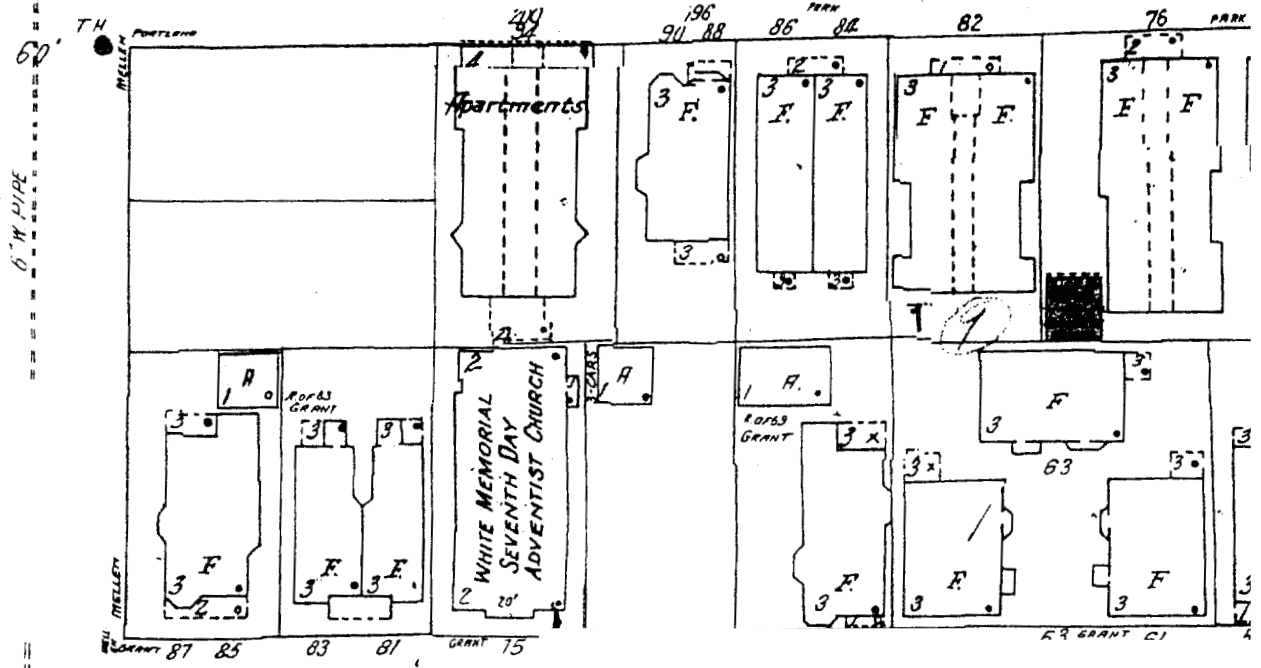 TH
60'
6" W. PIPE
MELLEN
PORTLAND
94
196
90 88
PARK
86 84
82
76
PARK
4
Apartments
3
F.
3
2
3 3
F. F.
3 3
1
3
F F.
2
3
F F
1
A
R. OF 83
GRANT
3
3
F
2
3 3
F. F.
3 3
2
WHITE MEMORIAL
SEVENTH DAY
ADVENTIST CHURCH
2
20'
3-CARS
1
A
1
A.
R. OF 69
GRANT
3 x
F.
3
3
F
3
63
3 x
F.
3
3
F
3
3
3
MELLEN
GRANT
87 85
83 81
GRANT 75
63 GRANT 61